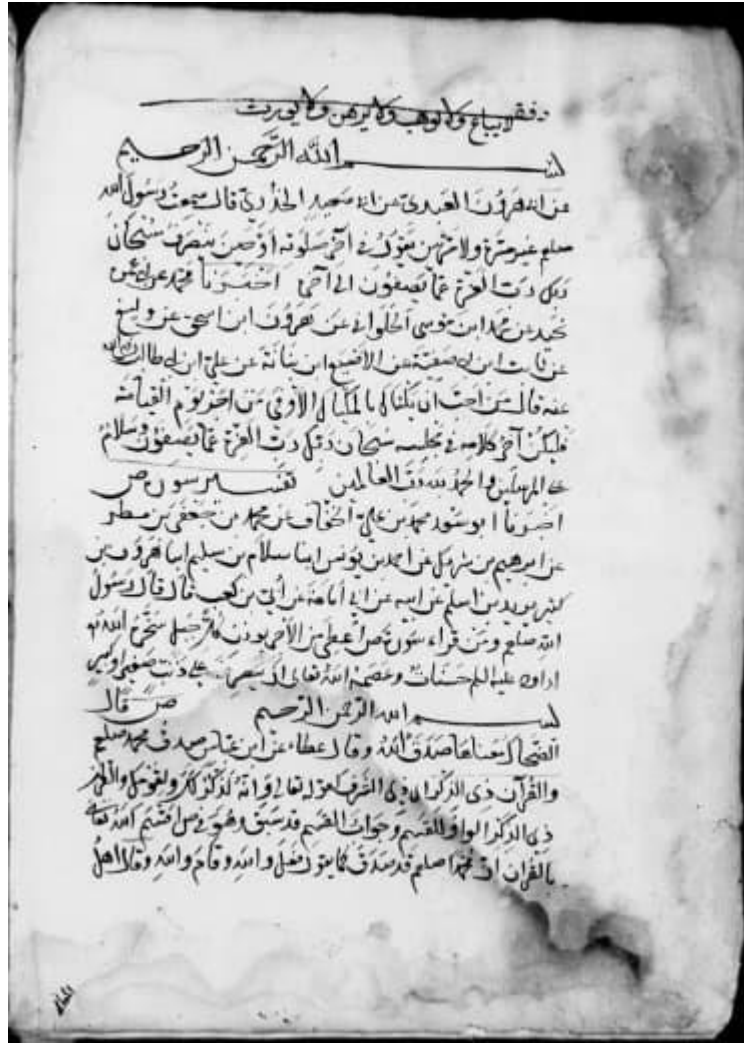 وقف لا يباع ولا يوهب ولا يرهن ولا يورث
بسم الله الرحمن الرحيم
عن ابى هرون العبدى عن ابى سعيد الخدرى قال سمعت رسول الله
صلعم غير مرة ولا مرتين يقول فى آخر صلوته او حين ينصرف سبحان
ربك رب العزة عما يصفون الى آخرها اخبرنا محمد
عن محمد ابن موسى الحلوانى عن هرون ابن اسحق عن وكيع
عن ثابت ابن ابى صفية عن الاصبغ ابن نباتة عن على ابن ابى طالب رضى الله
عنه قال من احب ان يكتال بالمكيال الاوفى من اجر يوم القيامة
فليكن آخر كلامه فى مجلسه سبحان ربك رب العزة عما يصفون وسلام
على المرسلين والحمد لله رب العالمين تفسير سورة ص
اخبرنا ابو محمد بن على الخفاف عن محمد بن جعفر بن مطر
عن ابرهيم بن شريك عن احمد بن يونس ابنا سلام بن سليم ابنا هرون بن
كثير بن زيد بن اسلم عن ابيه عن ابى امامة عن ابى بن كعب قال قال رسول
الله صلعم ومن قراء سورة ص اعطى من الاجر بوزن كل جبل سخره الله
لداود عليه السلم حسنات وعصمه الله تعالى ان يصر على ذنب صغير او كبير
بسم الله الرحمن الرحيم ص قال
الضحاك معناها صدق الله وقال عطاء عن ابن عباس صدق محمد صلعم
والقرآن ذى الذكر اى ذى الشرف كقوله تعالى وانه لذكر لك ولقومك
ذى الذكر الواو للقسم وجواب القسم قد سبق وهو ص اقسم الله تعالى
بالقران ان محمدا صلعم قد صدق كما يقول فعل والله وقام والله وقال اهل